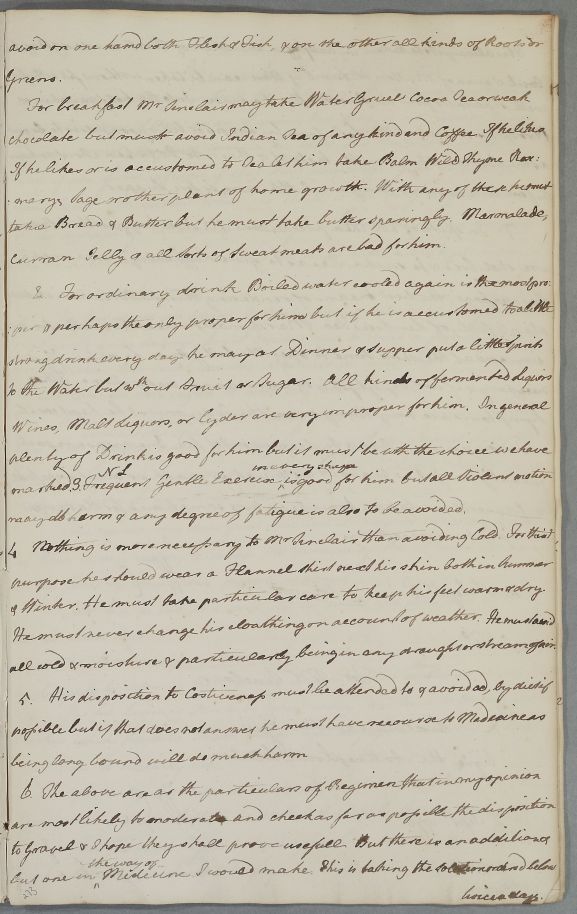 avoid on one hand both Flesh & Fish, & on the other all kinds of Roots or
Greens.
For breakfast Mr Sinclair may take Water Gruel Cocoa Tea or weak
chocolate but must avoid Indian Tea of any kind and Coffee. If he likes
If he likes or is accustomed to Tea let him take Balm Wild Thyme Rose:
:mary, Sage or other plant of home growth. With any of these he must
take Bread & Butter but he must take butter sparingly. Marmalade,
Curran Gelly & all Sorts of Sweatmeats are bad for him.
2. For ordinary drink Boiled water cooled again is the most pro:
:per & perhaps the only proper for him but if he is accustomed to a little
strong drink every day he may at Dinner & Supper put a little Spirits
to the Water but wth out Fruit or Sugar. All kinds of fermented Liquors
Wines, Malt Liquors, or Cyder are very improper for him. In general
plenty of Drink is good for him but it must be with the choice we have
in every shape
marked 3. Frequent Gentle Exercise is good for him but all Violent motion
may do harm & any degree of fatigue is also to be avoided.
4 Nothing is more necessary to Mr Sinclair than avoiding Cold. For this
purpose he should wear a Flannel shirt next his skin both in Summer
& Winter. He must take particular care to keep his feet warm & dry.
He must never change his cloathing on account of weather. He must avoid
all cold & moisture & particularly being in any draught or stream of air.
5. His disposition to Costiveness must be attended to & avoided, by diet if
possible but if that does not answer he must have recourse to Medicine as
being long bound will do much harm
6 The above are as the particulars of Regimen that in my opinion
are most likely to moderate and check as far as possible the disposition
to Gravel & I hope they shall prove usefull. But there is an additional
the way of
but one in Medicine I would make. This is taking the solution ordered below
twice a day.